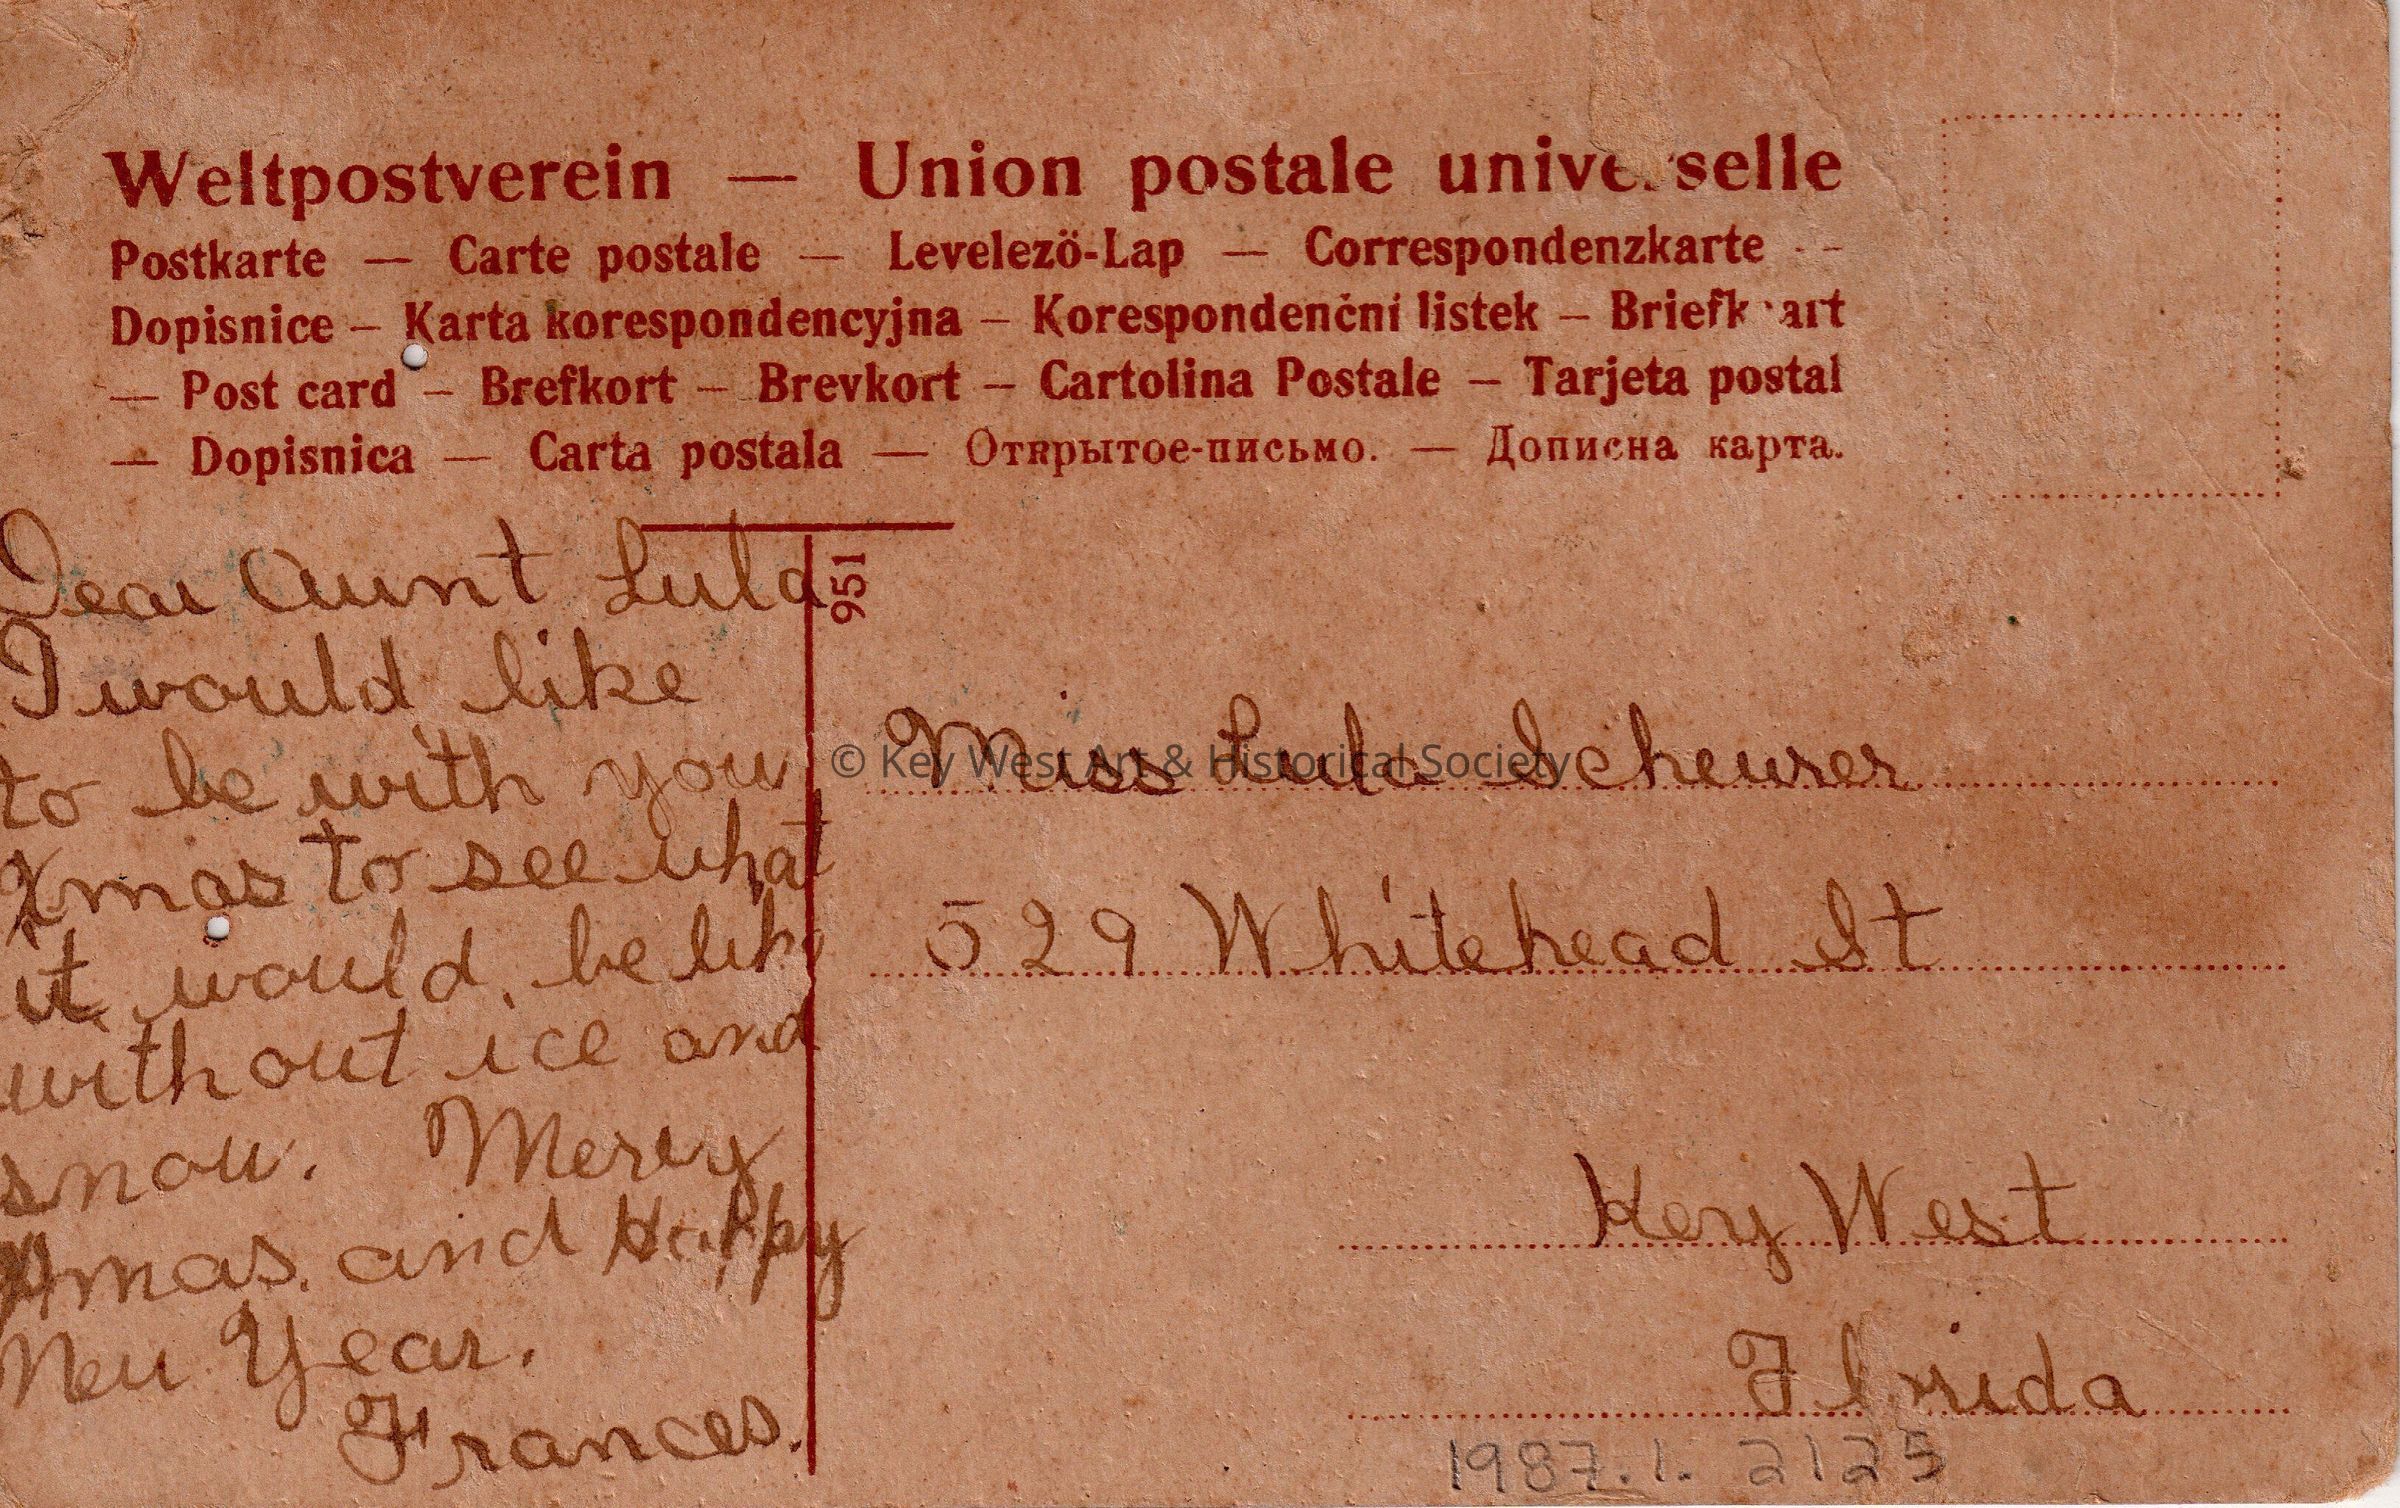 Weltpostverein — Union postale universelle
Postkarte — Carte postale — Levelezö-Lap — Correspondenzkarte —
Dopisnice — Karta korespondencyjna — Korespondenční listek — Briefkaart
— Post card — Brefkort — Brevkort — Cartolina Postale — Tarjeta postal
— Dopisnica — Carta postala — Открытое-письмо. — Дописна карта.
951
Dear Aunt Lula
I would like
to be with you
Xmas to see what
it would be like
without ice and
snow. Merry
Xmas. and Happy
New Year.
Frances.
Miss Lula Scheurer
529 Whitehead St
Key West
Florida
1987.1.2125
© Key West Art & Historical Society